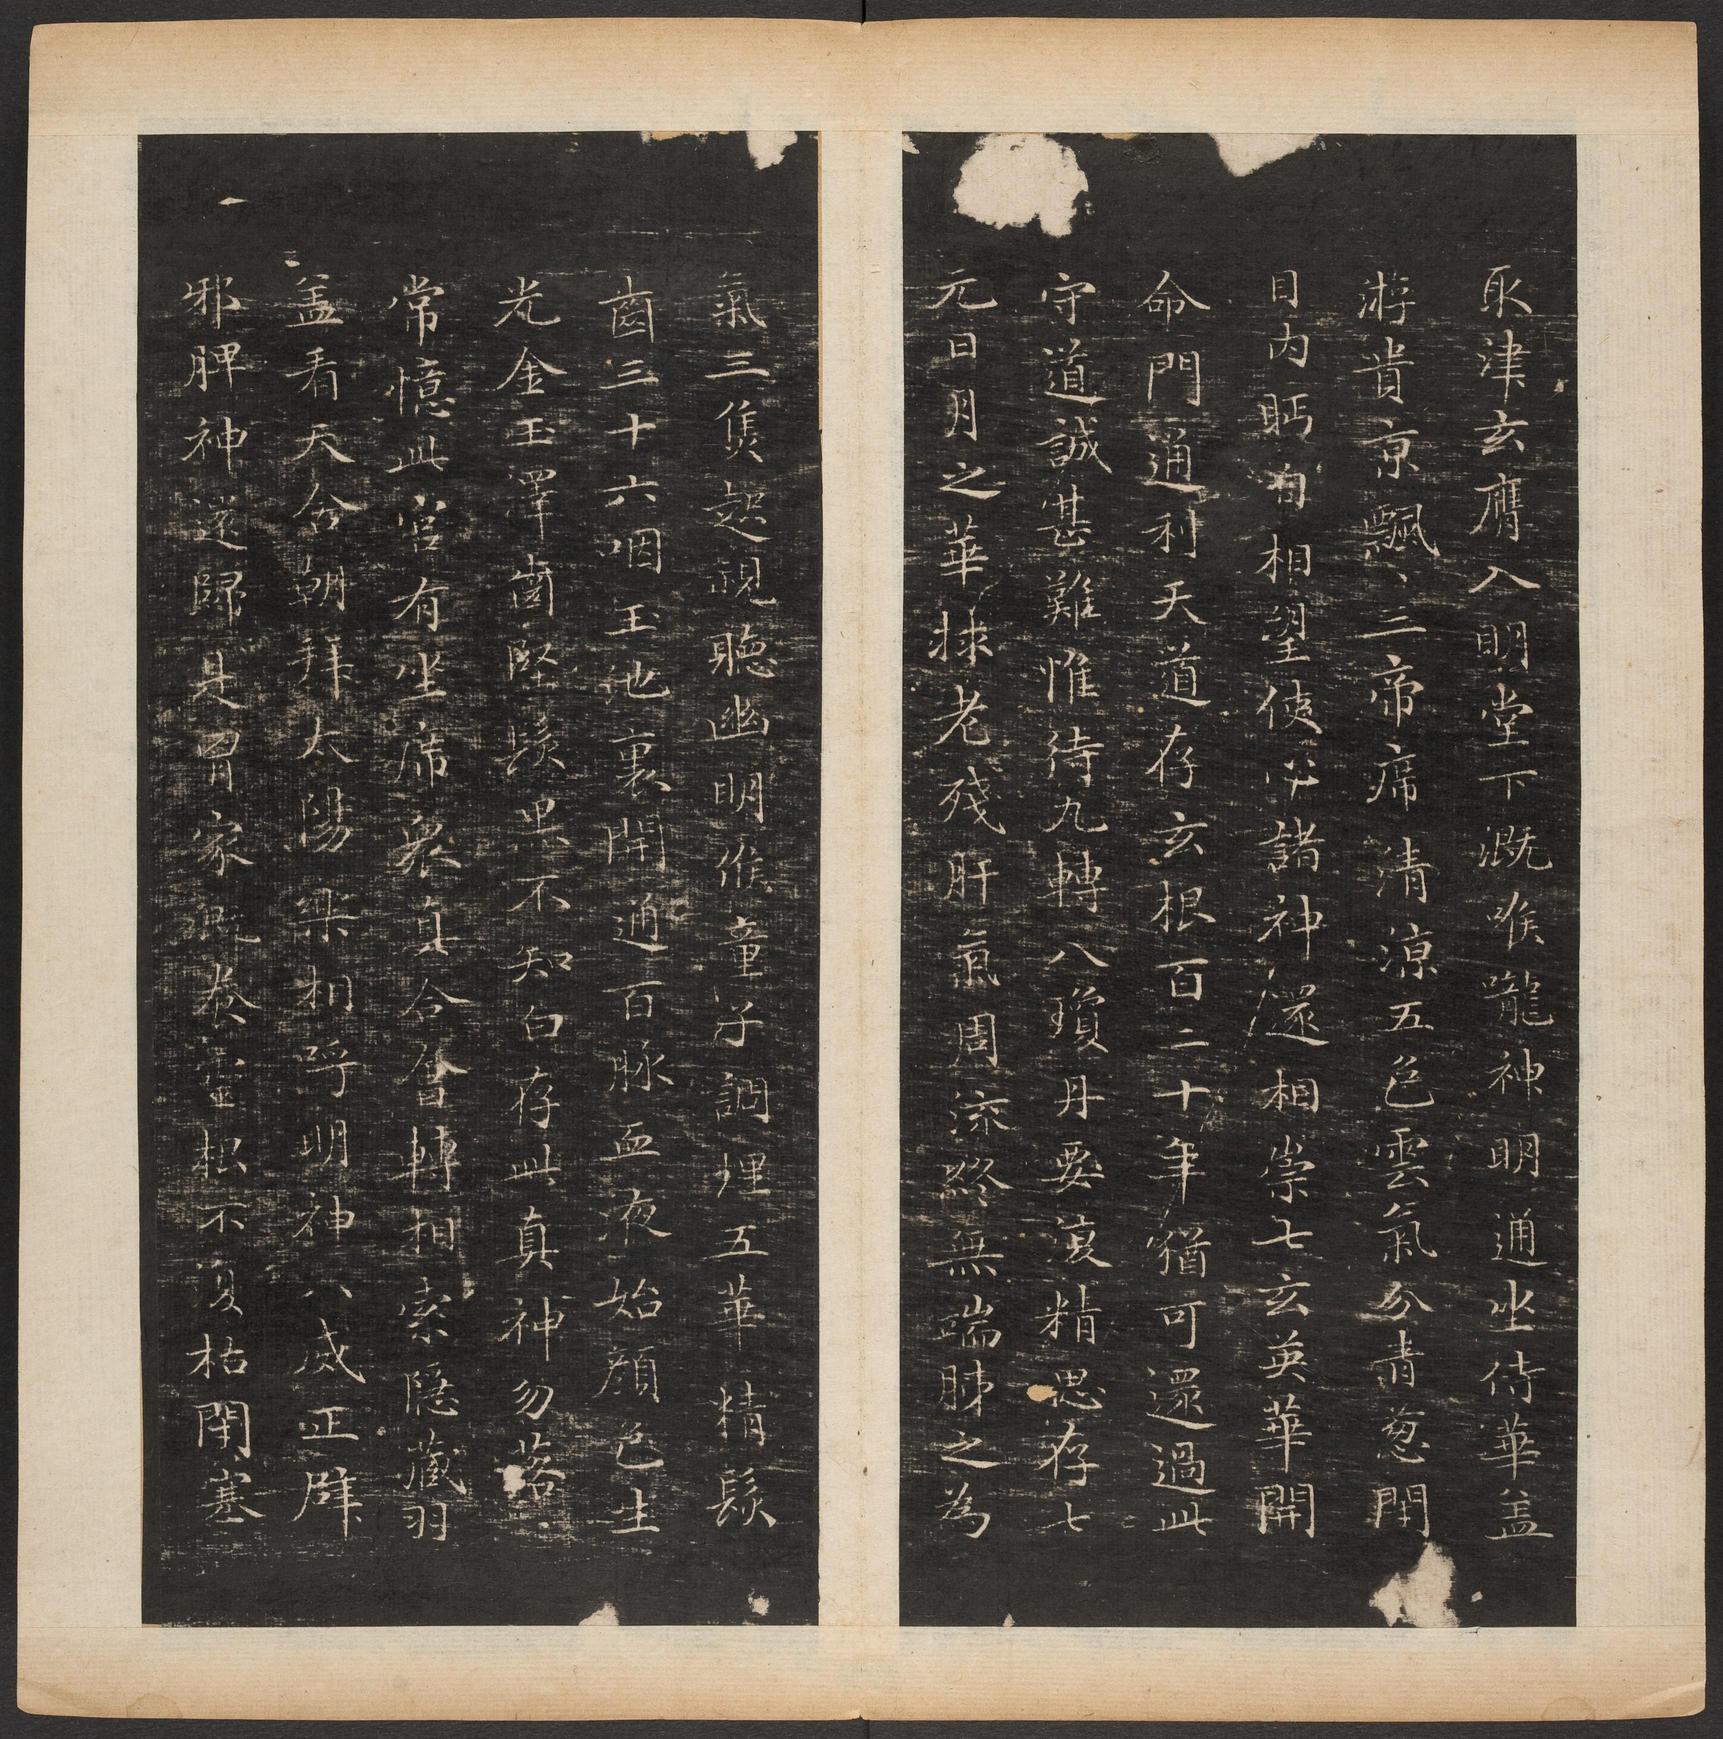 取津玄膺入明堂下溉喉嚨神明通坐侍華盖
游貴京飄、三帝席清涼五色雲氣分青葱閇
目內眄自相望使心諸神還相崇七玄英華開
命門通利天道存玄根百二十年猶可還過此
守道誠甚難惟待九轉八瓊丹要復精思存七
元日月之華捄老殘肝氣周流終無端肺之為
氣三焦起視聽幽明候童子調理五華精髮
齒三十六咽玉池裏開通百脉血液始顔色生
光金玉澤齒堅髮黑不知白存此真神勿落落
常憶此宮有坐席衆真合會轉相索隱藏羽
盖看天舍朝拜太陽樂相呼明神八威正辟
邪脾神還歸是胃家躭養靈根不復枯閇塞